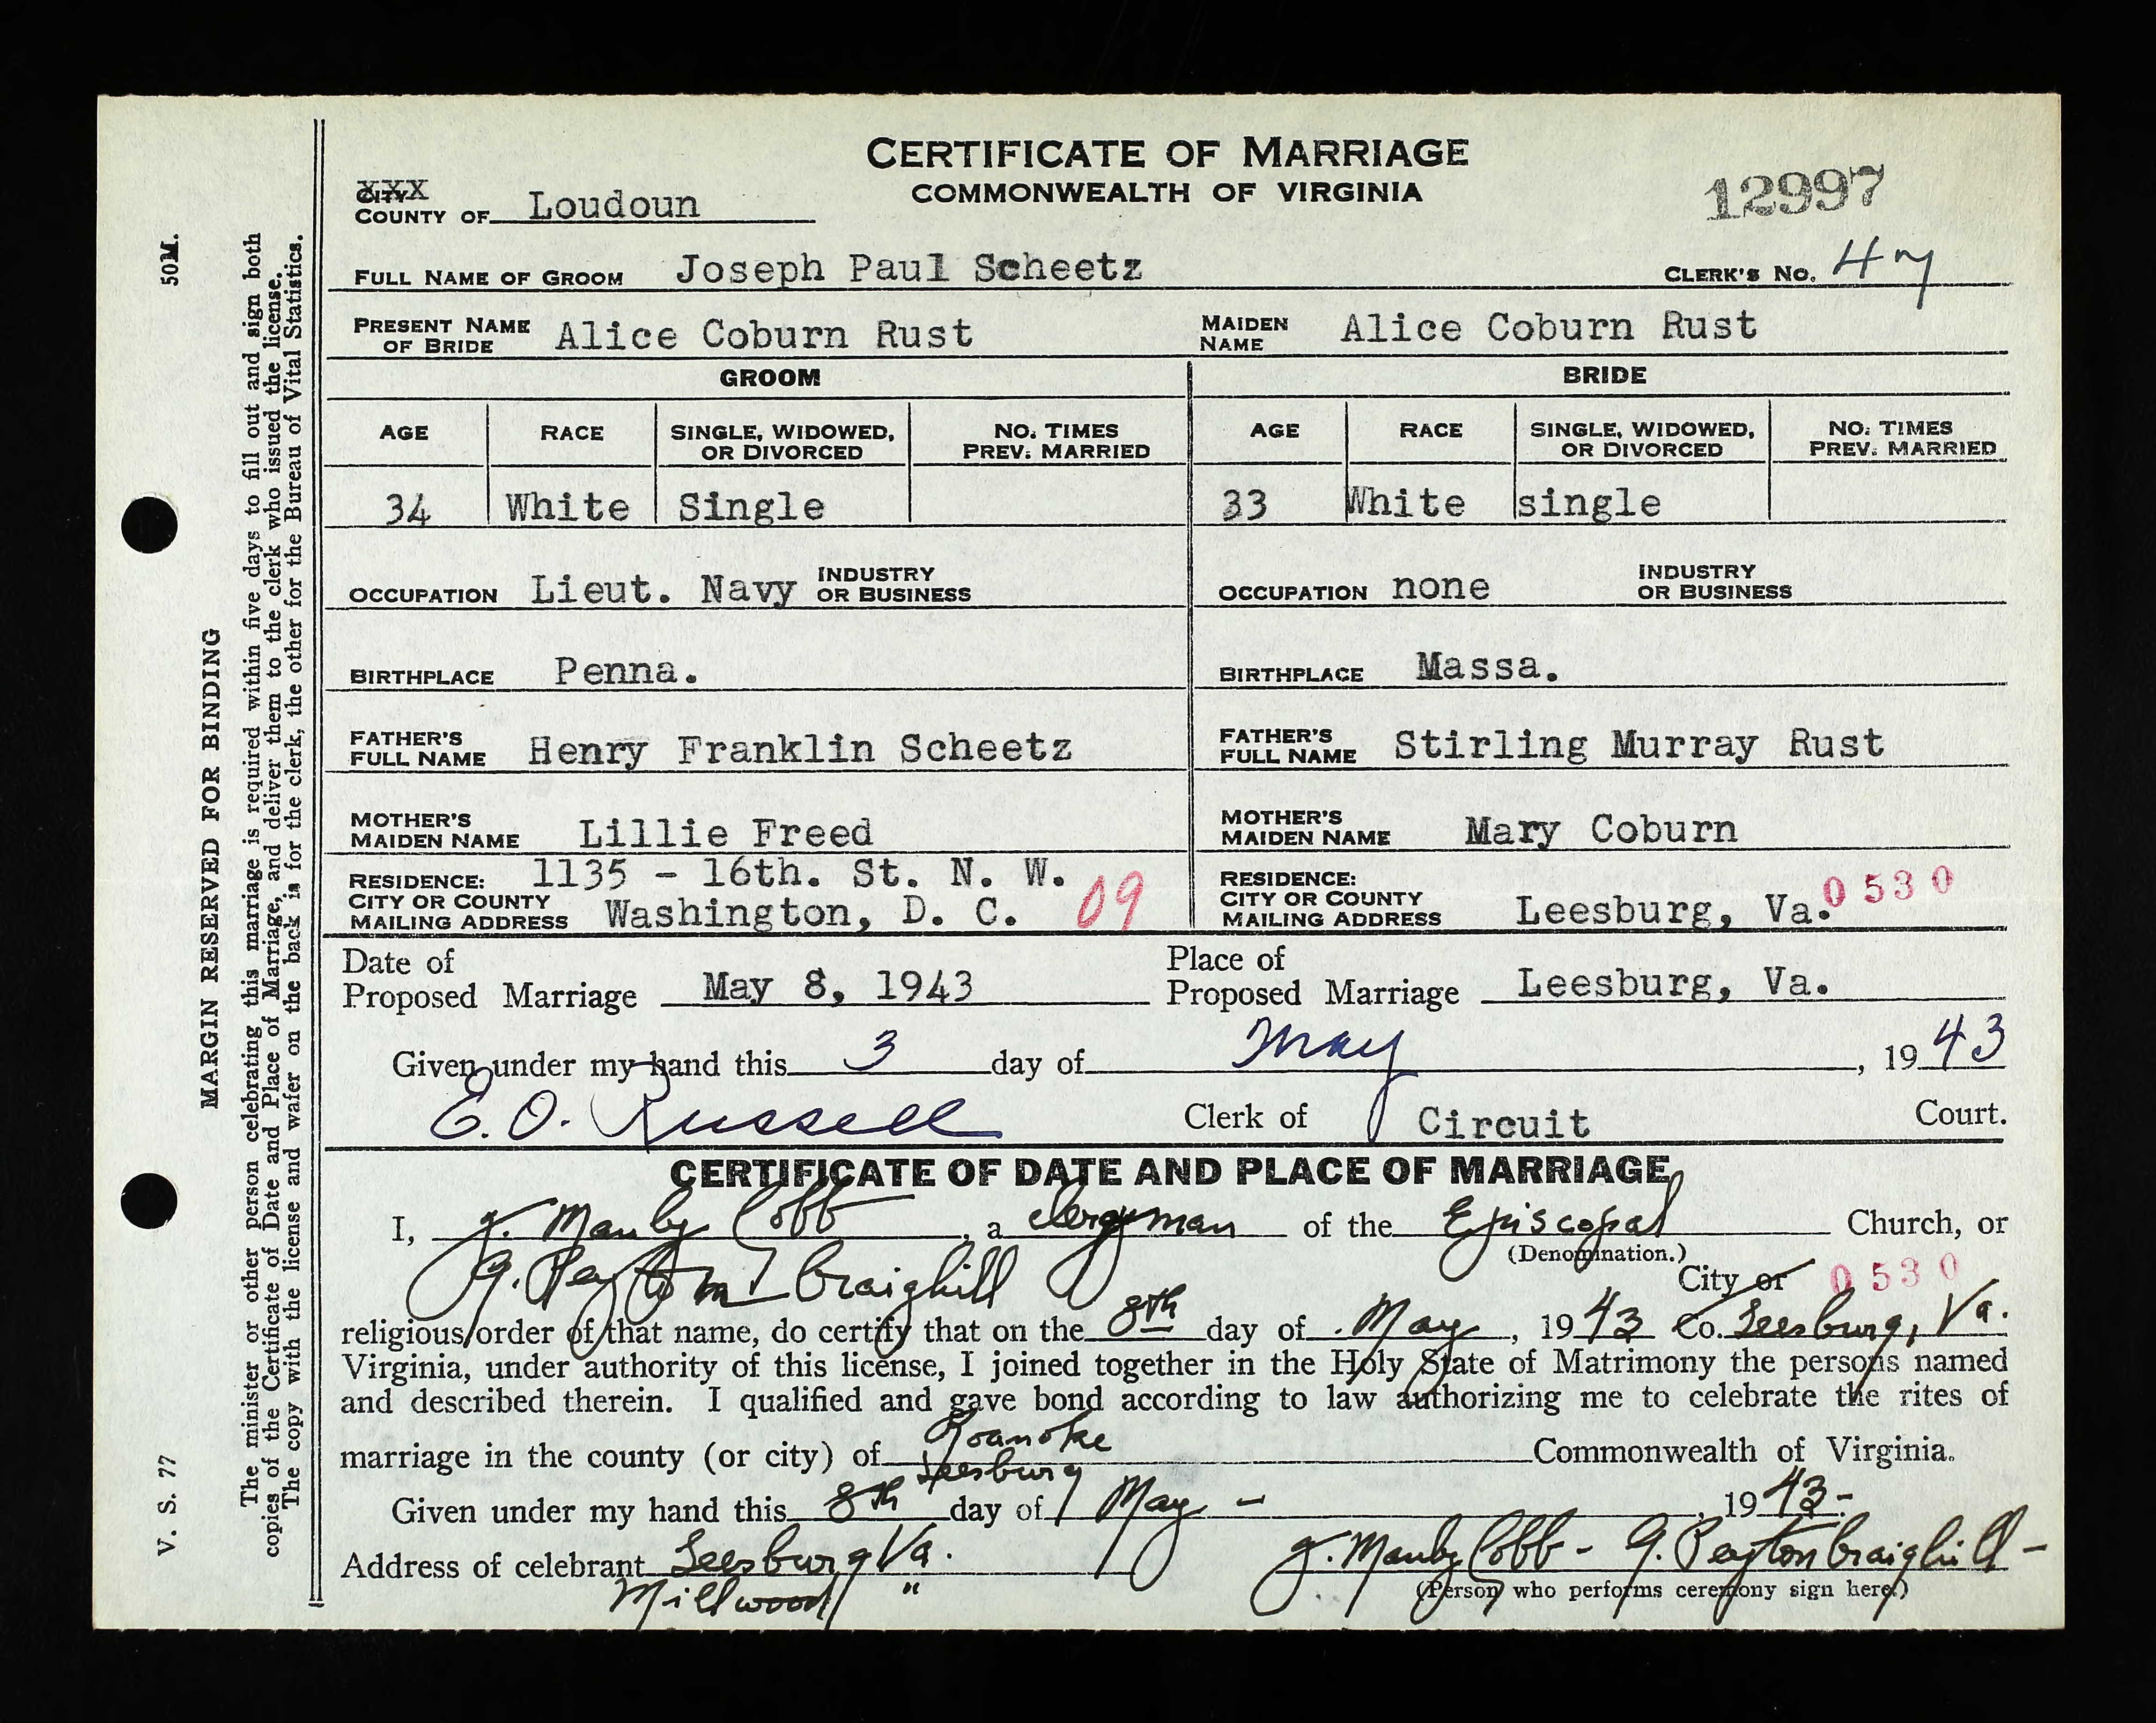 CERTIFICATE OF MARRIAGE
COMMONWEALTH OF VIRGINIA
12997
CITY XXX
COUNTY OF Loudoun
FULL NAME OF GROOM Joseph Paul Scheetz CLERK'S No.
PRESENT NAME OF BRIDE Alice Coburn Rust MAIDEN NAME Alice Coburn Rust
GROOM BRIDE
AGE RACE SINGLE, WIDOWED, OR DIVORCED NO. TIMES PREV. MARRIED AGE RACE SINGLE, WIDOWED, OR DIVORCED NO. TIMES PREV. MARRIED
34 White Single 33 White single
OCCUPATION Lieut. Navy INDUSTRY OR BUSINESS OCCUPATION none INDUSTRY OR BUSINESS
BIRTHPLACE Penna. BIRTHPLACE Massa.
FATHER'S FULL NAME Henry Franklin Scheetz FATHER'S FULL NAME Stirling Murray Rust
MOTHER'S MAIDEN NAME Lillie Freed MOTHER'S MAIDEN NAME Mary Coburn
RESIDENCE: CITY OR COUNTY MAILING ADDRESS 1135 - 16th. St. N. W. Washington, D. C. 09 RESIDENCE: CITY OR COUNTY MAILING ADDRESS Leesburg, Va. 0530
Date of Proposed Marriage May 8, 1943 Place of Proposed Marriage Leesburg, Va.
Given under my hand this 3 day of May, 1943
E.O. Russell Clerk of Circuit Court.
CERTIFICATE OF DATE AND PLACE OF MARRIAGE
I, J. Manby Cobb, a clergyman of the Episcopal Church, or
(Denomination.)
G. Peyton Craighill City or 0530
religious order of that name, do certify that on the 8th day of May, 1943 Co. Leesburg, Va.
Virginia, under authority of this license, I joined together in the Holy State of Matrimony the persons named
and described therein. I qualified and gave bond according to law authorizing me to celebrate the rites of
Roanoke
marriage in the county (or city) of Leesburg Commonwealth of Virginia.
Given under my hand this 8th day of May - , 1943-
Address of celebrant Leesburg Va. J. Manby Cobb - G. Peyton Craighill -
Millwood " (Person who performs ceremony sign here.)
50M.
MARGIN RESERVED FOR BINDING
V. S. 77
The minister or other person celebrating this marriage is required within five days to fill out and sign both
copies of the Certificate of Date and Place of Marriage, and deliver them to the clerk who issued the license.
The copy with the license and wafer on the back is for the clerk, the other for the Bureau of Vital Statistics.